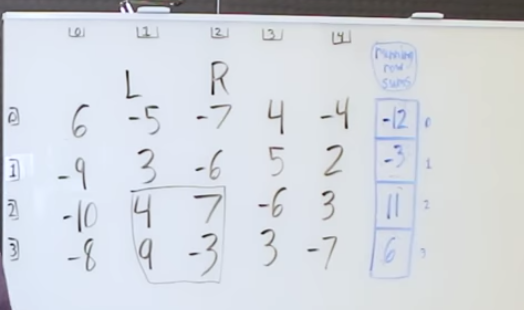 0 1 2 3 4 running
row
sums
L R
0 6 -5 -7 4 -4 -12 0
1 -9 3 -6 5 2 -3 1
2 -10 4 7 -6 3 11 2
3 -8 9 -3 3 -7 6 3